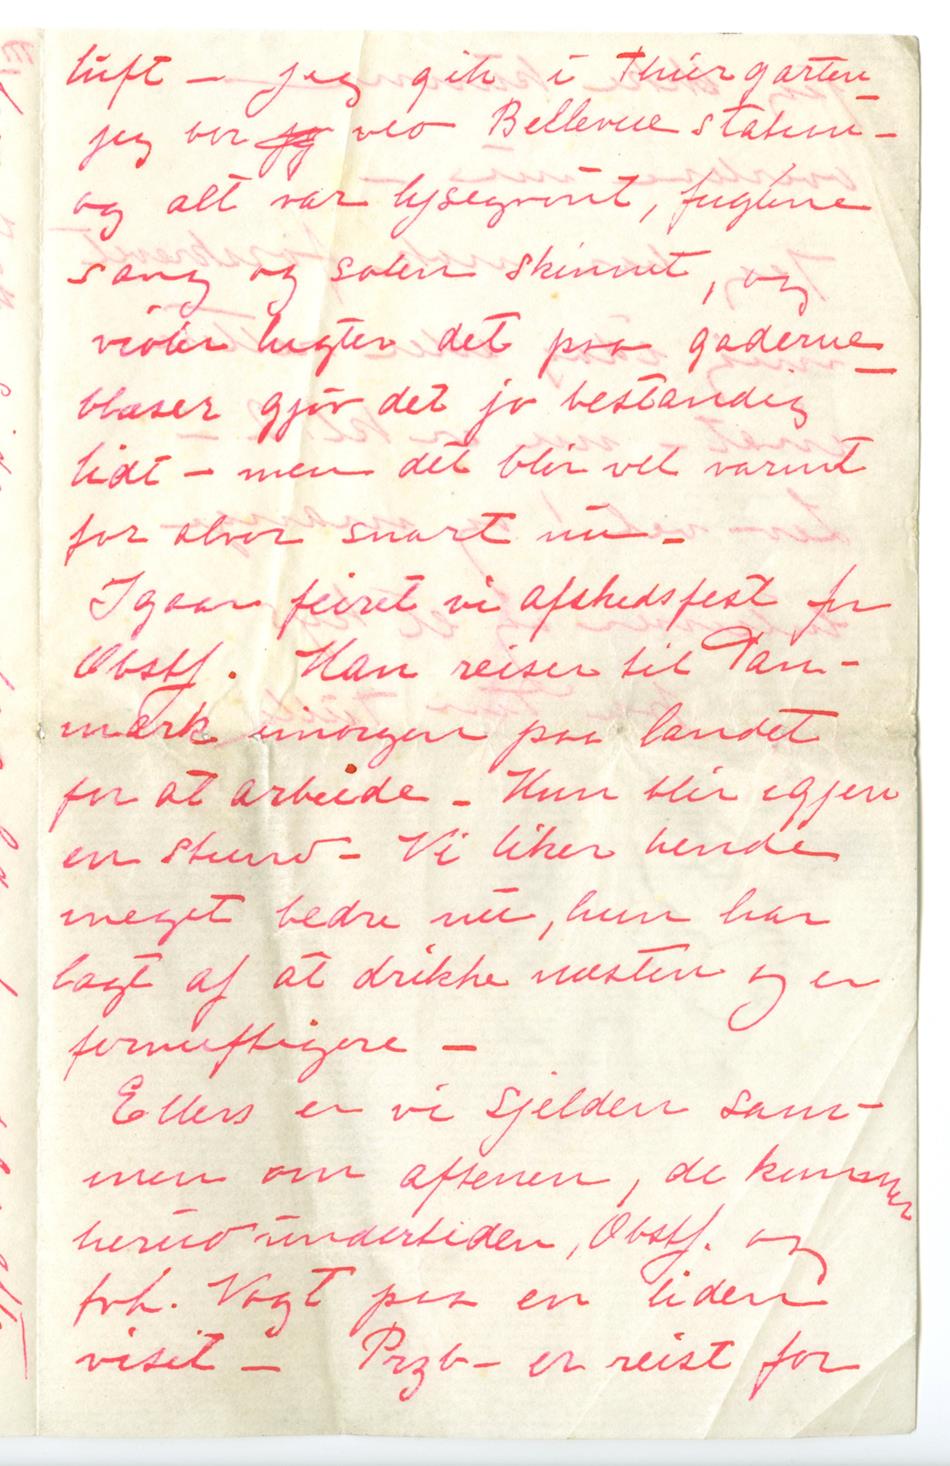 luft – jeg gik i Thiergarten –
jeg bor jeg ved Bellevue station –
og alt var lysegrønt, fuglene
sang og solen skinnet, og
violer lugter det paa gaderne –
blæser gjør det jo bestandig
lidt – men det blir vel varmt
for alvor snart nu –
Igaar feiret vi afskedsfest for
Obstf. Han reiser til Dan-
mark imorgen paa landet
for at arbeide – Hun blir igjen
en stund – Vi liker hende
meget bedre nu, hun har
lagt af at drikke næsten og er
fornuftigere –
Ellers er vi sjelden sam-
men om aftenen, de kommer
herud undertiden, Obstf. og
frk. Vogt paa en liden
visit – Przb – er reist for